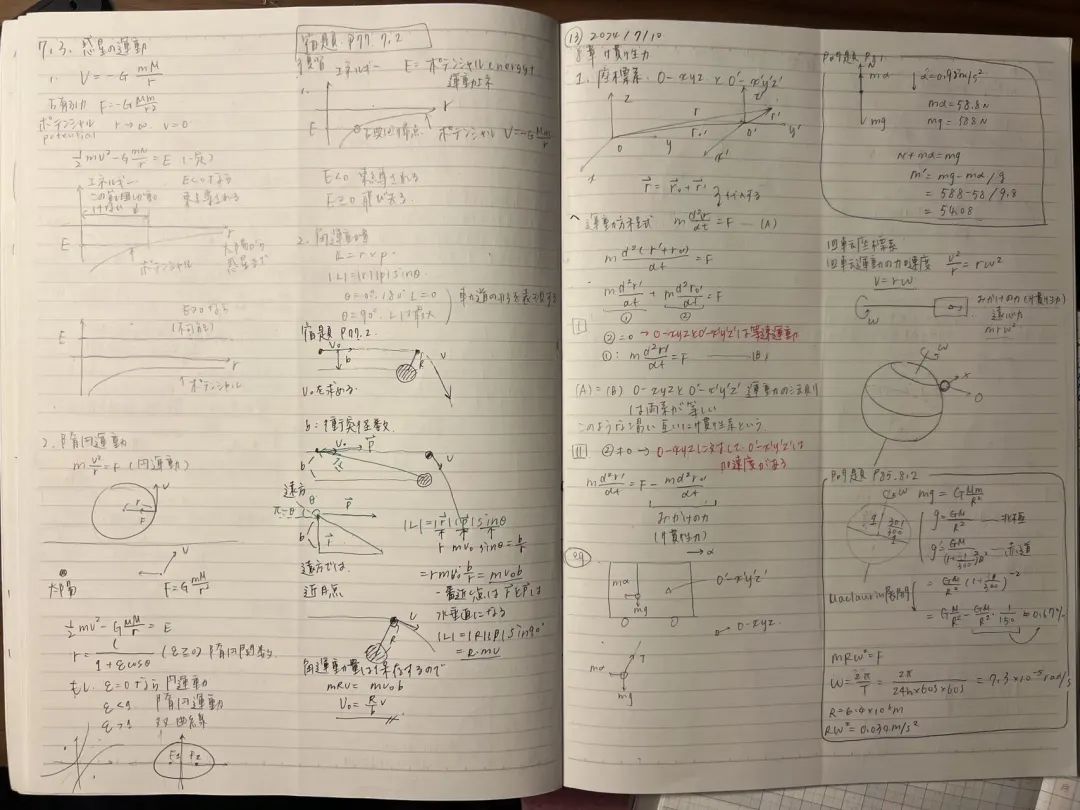 7.3. 惑星の運動
1. V = -G mM/r
万有引力 F = -G Mm/r²
ポテンシャル r→∞. V=0
potential
1/2 mv² - G mM/r = E (一定)
エネルギー E<0なら
束縛される
E
r
太陽から
惑星まで
ポテンシャル
E>0なら
E
r
↑ポテンシャル
2. 楕円運動
m v²/r = F (円運動)
r
F
v
太陽
v
F = G mM/r²
1/2 mv² - G mM/r = E
r = l/(1+εcosθ) (ε≧0) 楕円関数
もし ε=0なら 円運動
ε<1 楕円運動
ε>1 双曲線
F1 F2
宿題 P77. 7.2
エネルギー E = ポテンシャル energy +
運動エネ
1.
r
E
0
ポテンシャル V = -G Mm/r
E<0 束縛される
E≧0 飛び去る
2. 角運動量
L = r × p.
|L| = |r||p|sinθ.
θ=0°.180° L=0
θ=90° Lは最大
軌道の形を表現する
宿題 P77.2.
v₀
b
R
v
v₀を求める.
b: 衝突径数.
b
v₀
P
r
v
遠方
θ
π-θ
P
b
r
|L| = |r||p|sinθ
r mv₀ sinθ = b/r
遠方では.
= r mv₀ b/r = mv₀b
近月点
一番近い点は rとpは
垂直になる
|L| = |R||P|sin90°
= R·mv
v
R
角運動量は保存するので
mRv = mv₀b
v₀ = R/b v
⑬ 2024/7/10
8章 慣性力
1. 座標系. O-xyz と O'-x'y'z'
z
z'
r
r'
o'
y'
r₀
0
y
x'
x
r = r₀ + r'
運動方程式 m d²r/dt = F —— (A)
m d²(r'+r₀)/dt = F
m d²r'/dt + m d²r₀/dt = F
① ②
I
②=0 → O-xyzとO'-x'y'z'は等速運動
①: m d²r'/dt = F ——— (B)
(A) = (B) O-xyzと O'-x'y'z' 運動の法則
は両系が等しい
II
②≠0 → O-xyzに対して. O'-x'y'z'は
加速度がある
m d²r'/dt = F - m d²r₀/dt
みかけの力
(慣性力)
→α
例
mα
mg
O'-x'y'z'
O O
O-xyz.
mα
T
mg
例題 P81
N
mα
↓α=0.98m/s²
mg
mα = 58.8N
mg = 588N
N + mα = mg
m' = mg - mα / g
= 588-58 / 9.8
= 54.08
回転座標系
回転運動の加速度 v²/r = rω²
v = rω
ω
みかけの力(慣性力)
遠心力
mrω²
ω
x
O
例題 P85. 8.2
ω
mg = G Mm/R²
g = GM/R² —— 北極
g' = GM/((1+1/300)R)² —— 赤道
Maclaurin展開
= GM/R² (1+1/300)⁻²
= G M/R² - GM/R² · 1/150 ≒ 0.67%
mRω² = F
ω = 2π/T = 2π/(24h×60s×60s) = 7.3×10⁻⁵ rad/s
R = 6.4×10⁶m
Rω² = 0.034m/s²